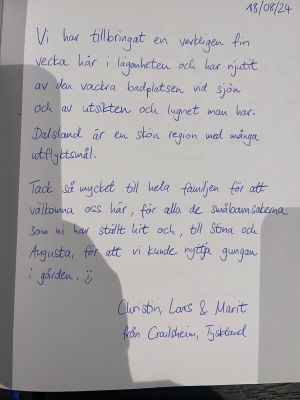 18/08/24
Vi har tillbringat en verkligen fin
vecka här i lägenheten och har njutit
av den vackra badplatsen vid sjön
och av utsikten och lugnet man har.
Dalsland är en skön region med många
utflyktsmål.
Tack så mycket till hela familjen för att
välkomna oss här, för alla de småbarnsakerna
som ni har ställt hit och, till Stina och
Augusta, för att vi kunde nyttja gungan
i gården. :)
Christin, Lars & Marit
från Crailsheim, Tyskland